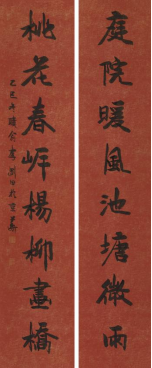 庭院暖風池塘微雨
桃花春岸楊柳畫橋